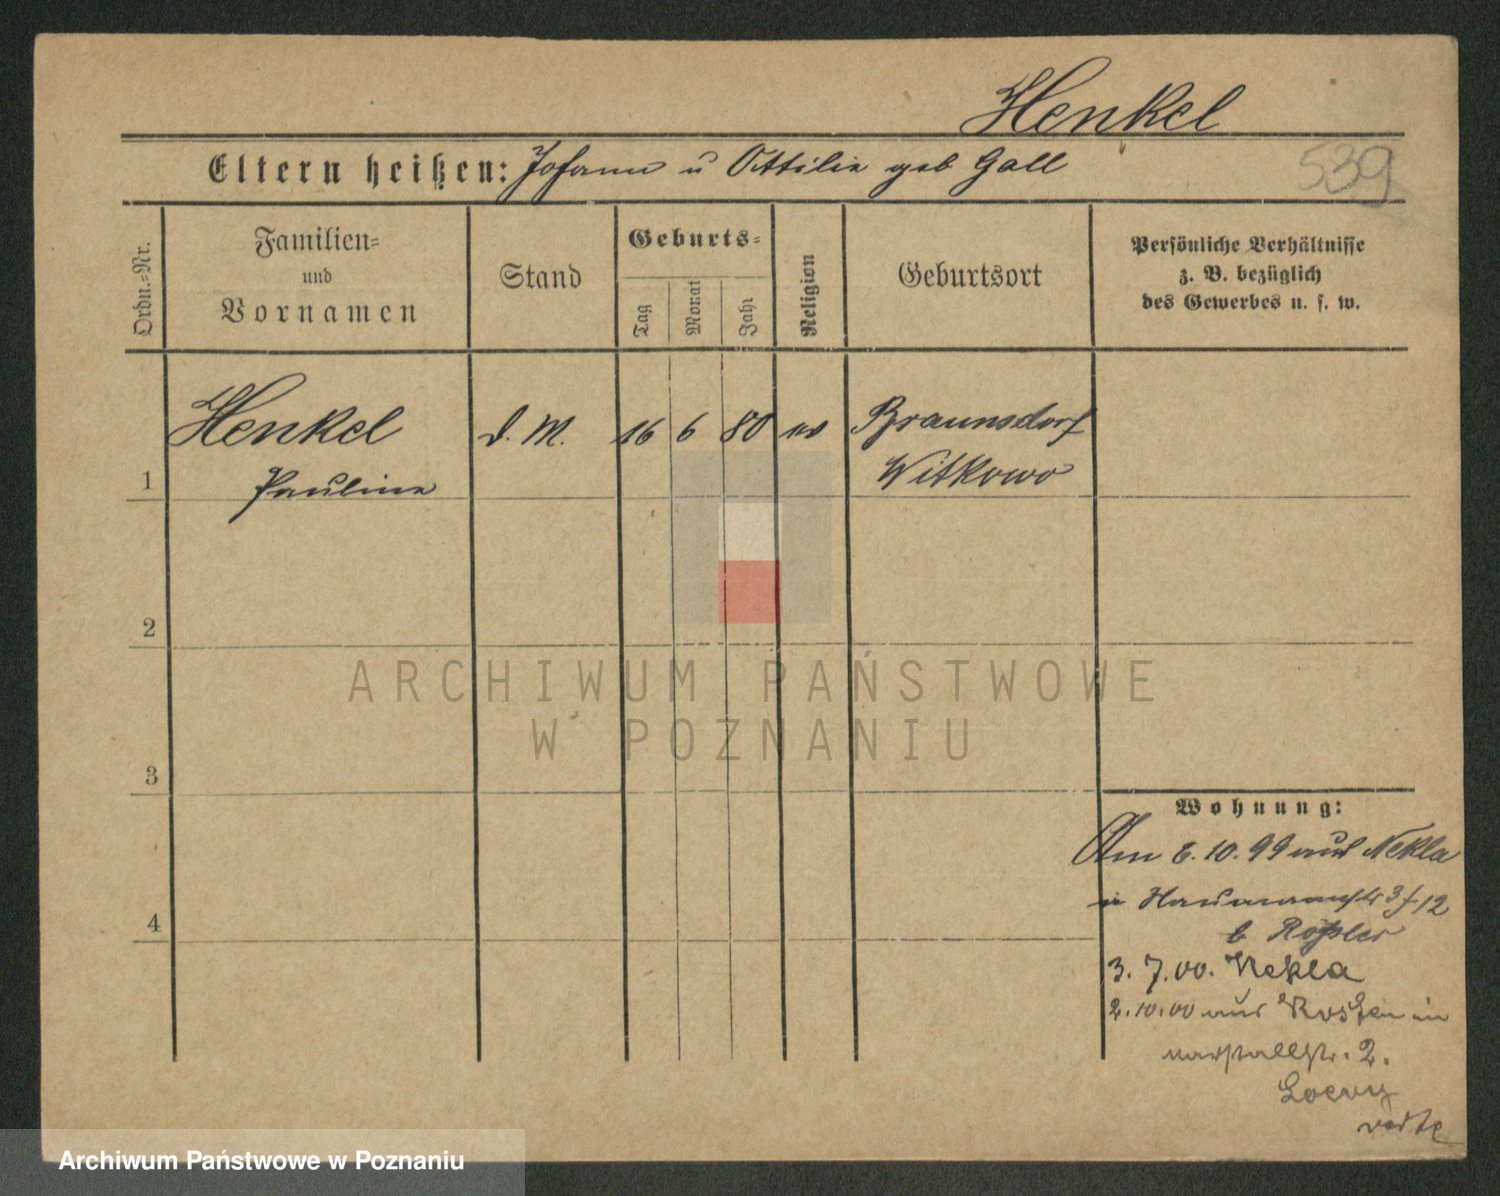 Henkel
Eltern heißen: Johann u Ottilie geb Gall
539
Ordn.=Nr.
Familien=
und
Vornamen
Stand
Geburts=
Tag
Monat
Jahr
Religion
Geburtsort
Persönliche Verhältnisse
z. B. bezüglich
des Gewerbes u. s. w.
1
Henkel
Pauline
d. M.
16
6
80
ev
Braunsdorf
Witkowo
2
3
4
ARCHIWUM PAŃSTWOWE
W POZNANIU
Wohnung:
Am 6. 10. 99 aus Nekla
in Naumannstr 3 f 12
b Rößler
3. 7. 00. Nekla
2. 10. 00 aus in
2.
Loewy
Archiwum Państwowe w Poznaniu